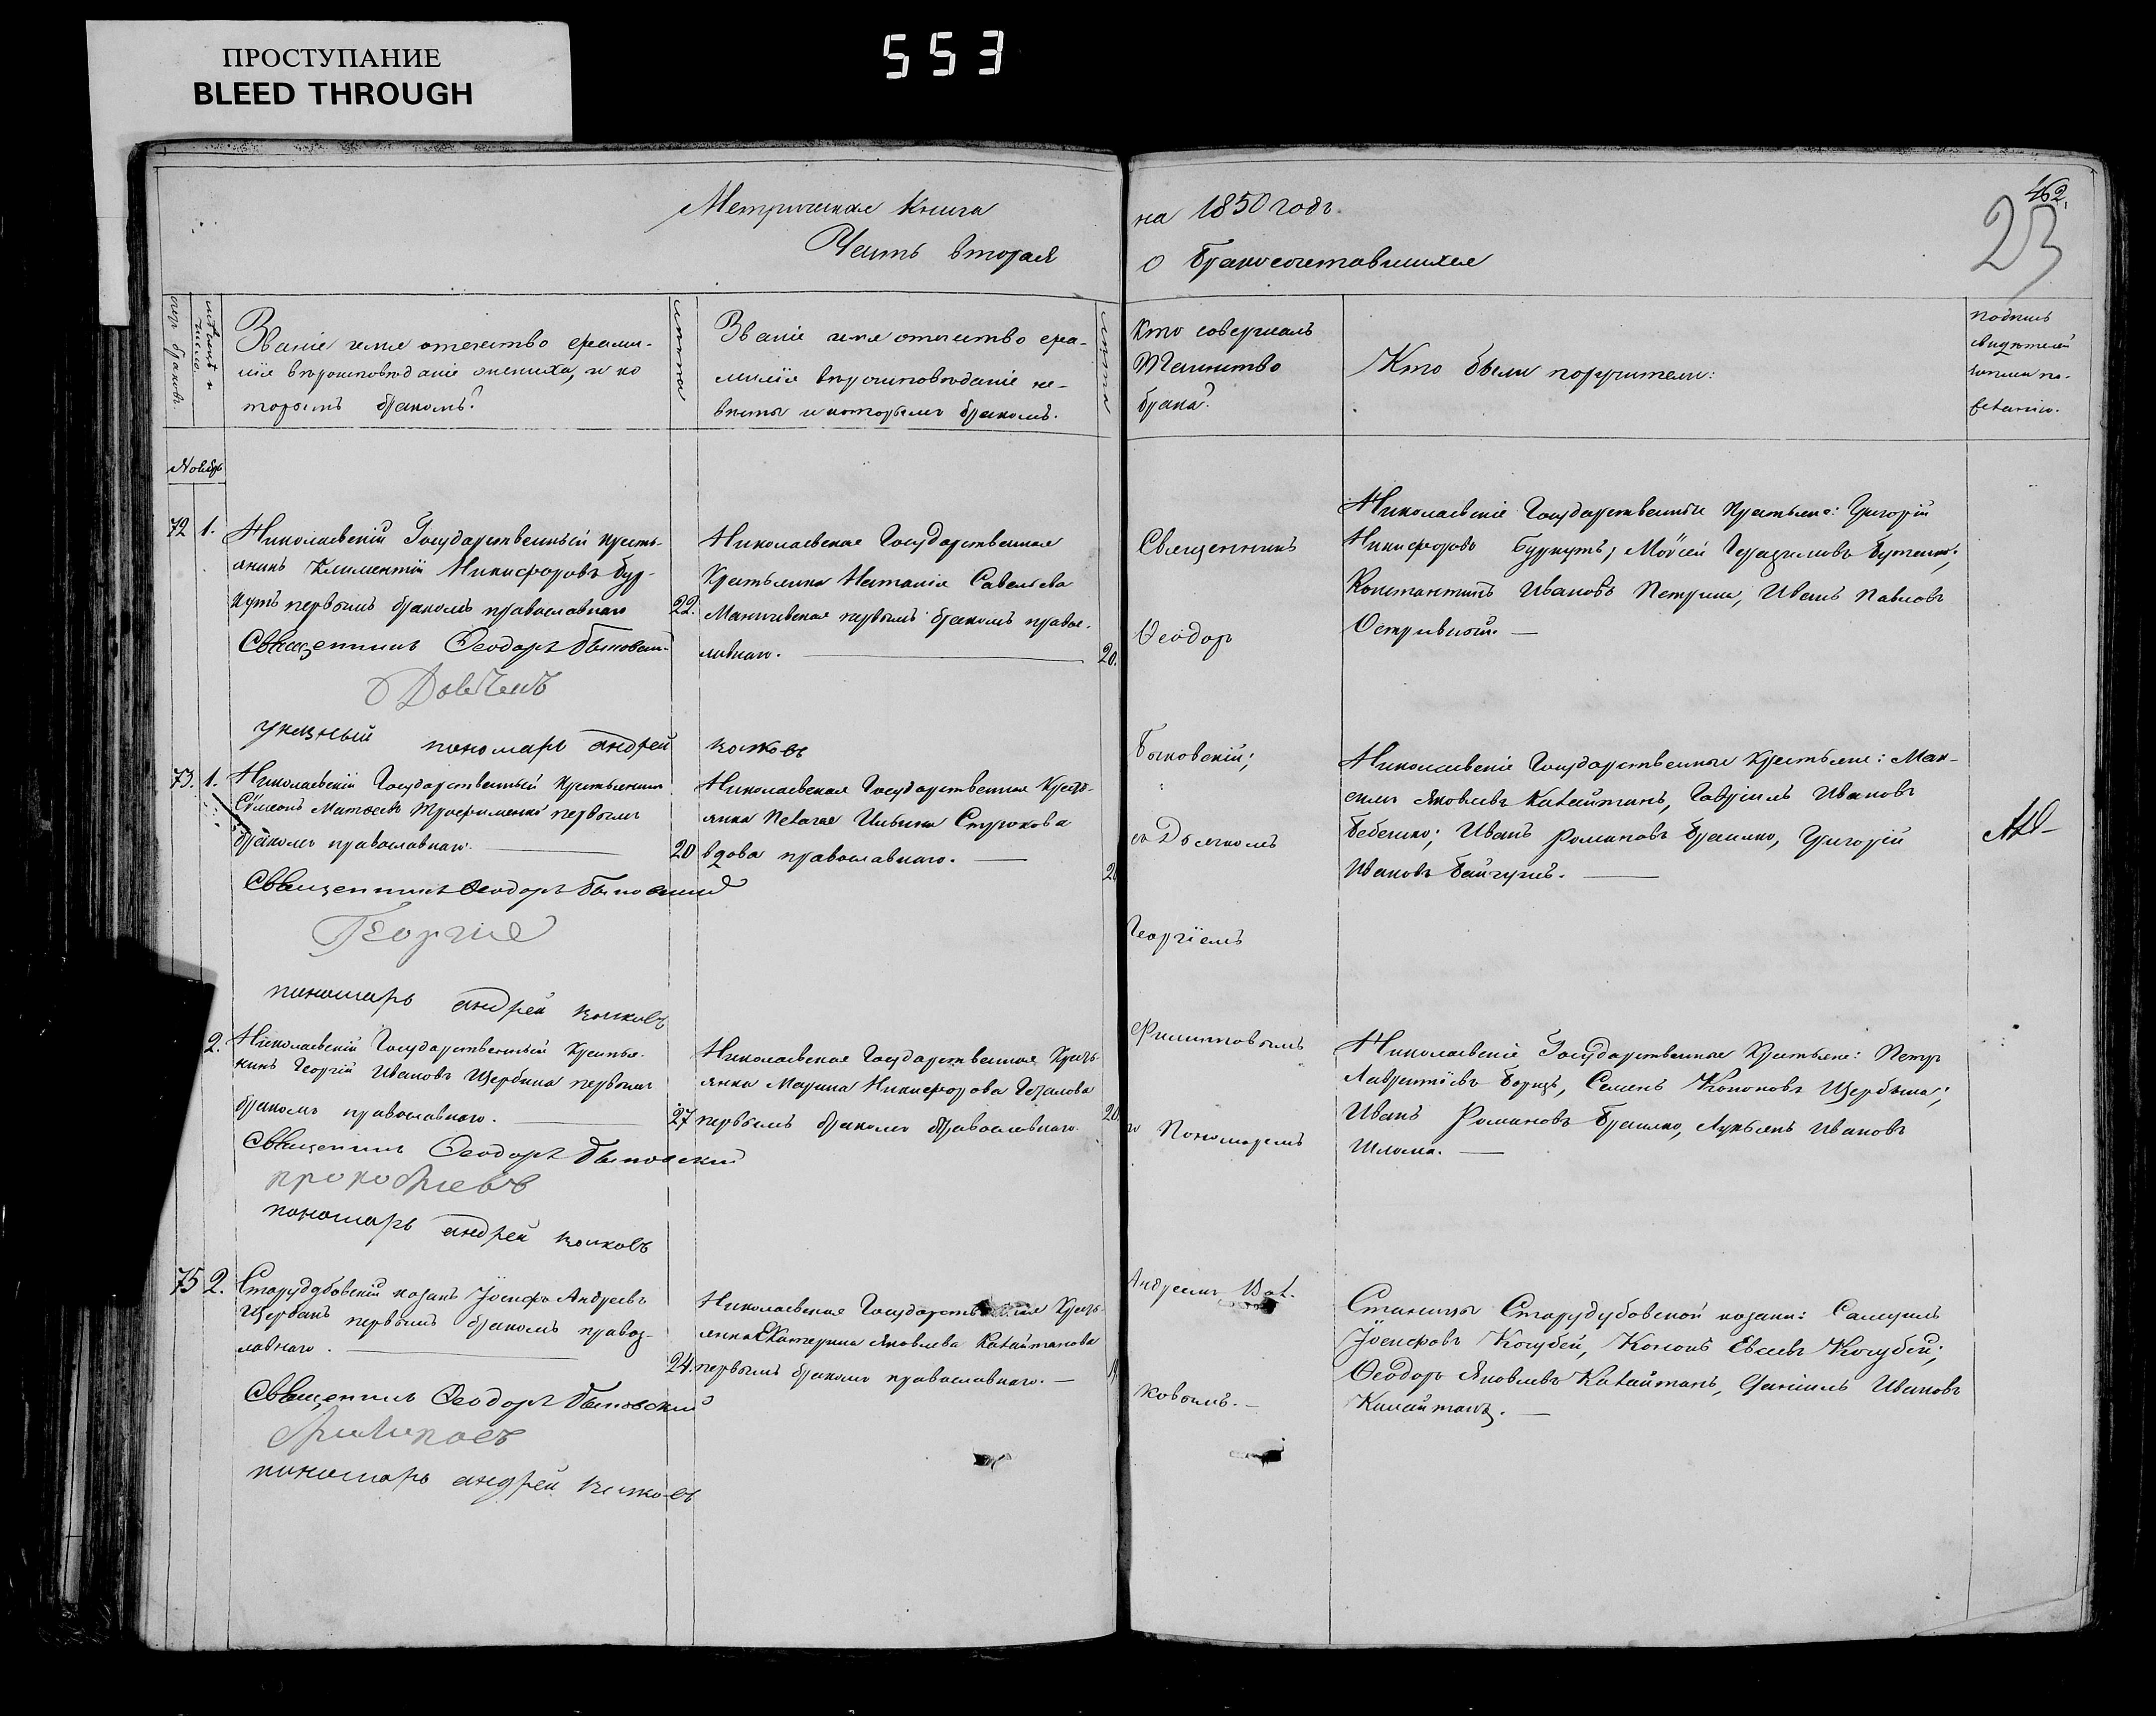 ПРОСТУПАНИЕ
BLEED THROUGH
553
Метрическая Книга
Часть вторая
на 1850 годъ.
о бракосочетавшихся
462.
23
счетъ браковъ.
мѣсяцъ и число
Званіе имя отечество фами-
лія вѣроисповѣданіе жениха, и ко
торымъ бракомъ?
лѣта
Званіе имя отечество фа-
милія вѣроисповѣданіе не-
вѣсты и которымъ бракомъ.
лѣта
Кто совершалъ
Таинство
брака?
Кто были поручители:
подпись
свидѣтелей
записи по
желанію.
Ноябрь
72 1.
Николаевскій Государственный кресть-
янинъ Климентій Никифоровъ Бур-
кутъ первымъ бракомъ православнаго
22.
Священникъ Ѳеодоръ Быковскій
указный пономарь андрей
Николаевская Государственная
Крестьянка Наталія Савельева
первымъ бракомъ правос-
лавнаго. 20.
Священникъ
Ѳеодор
Николаевскіе Государственные Крестьяне: Григорій
Никифоровъ Буркутъ, Моѵсей Герасимовъ Бутенко;
Константинъ Ивановъ Петриш, Иванъ Павловъ
73. 1.
Николаевскій Государственный Крестьянинъ
Сѵмеонъ Матѳеевъ Трофименко первымъ
бракомъ православнаго.
20
Священникъ Ѳеодоръ Быковскій
Георгие
пономарь андрей
Николаевская Государственная Кресть-
янка Пелагея Ильина Стрюкова
вдова православнаго.
Быковскій;
съ Дьячкомъ
Георгіемъ
Николаевскіе Государственные Крестьяне: Мак-
симъ Яковлевъ Калайтанъ, Гавріилъ Ивановъ
Бебешко; Иванъ Романовъ Брашко, Григорій
Ивановъ
2.
Николаевскій Государственный Крестья-
нинъ Георгій Ивановъ Щербина первымъ
бракомъ православнаго.
27
Священникъ Ѳеодоръ Быковский
прокофиевъ
пономарь андрей
Николаевская Государственная Кресть-
янка Марина Никифорова
первымъ бракомъ православнаго.
20.
Филипповымъ
и Пономаремъ
Николаевскіе Государственные Крестьяне: Петр
Лаврентіевъ Борщъ, Семенъ Кононовъ Щербина;
Иванъ Романовъ Брашко, Лукьянъ Ивановъ
75 2.
Стародубовскій козакъ Іосифъ Андреевъ
Щербакъ первымъ бракомъ правос-
лавнаго.
24.
Священникъ Ѳеодоръ Быковский
Филиповъ
пономарь андрей
Николаевская Государственная Кресть-
янка Екатерина Яковлева Калайтанова
первымъ бракомъ православнаго.
Андреемъ Вол-
ковымъ.
Станицы Стародубовской козаки: Самуилъ
Іосифовъ Кочубей, Кононъ Евсеевъ Кочубей;
Ѳеодоръ Яковлевъ Калайтанъ, Даніилъ Ивановъ
Калайтанъ.